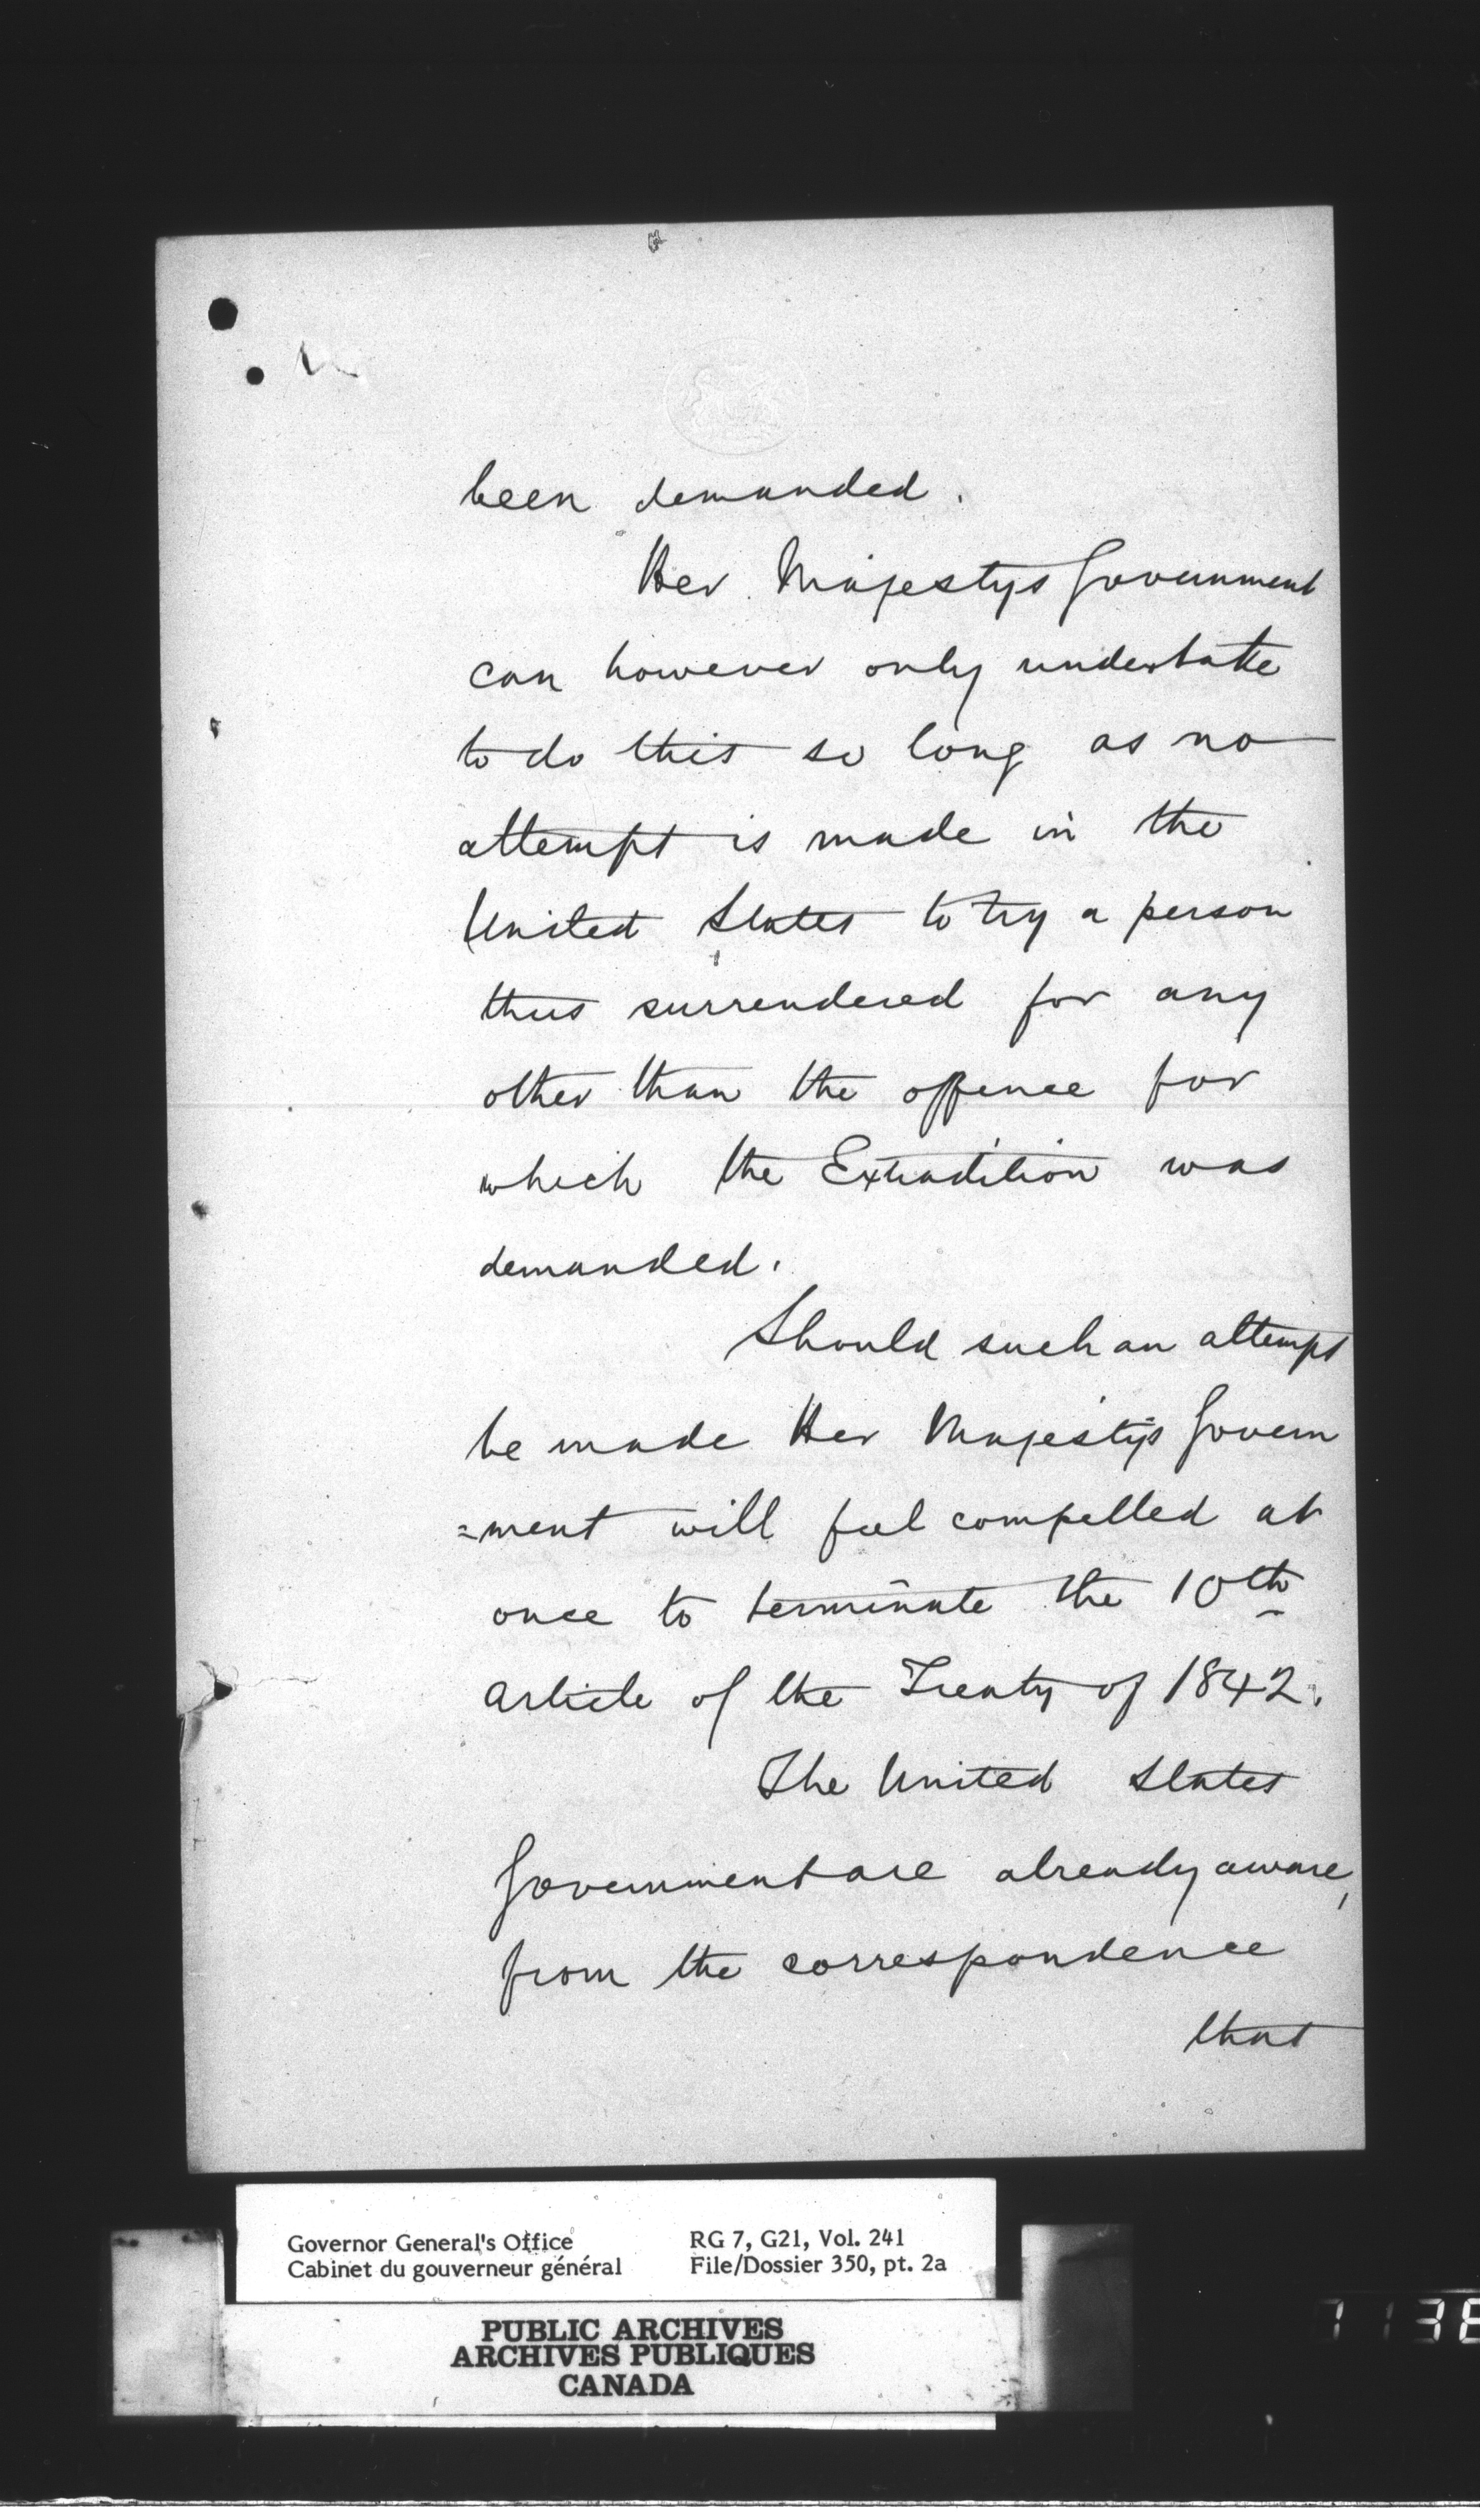 been demanded.
Her Majestys Government
can however only undertake
to do this so long as no
attempt is made in the
United States to try a person
thus surrendered for any
other than the offence for
which the Extradition was
demanded.
Should such an attempt
be made Her Majestys Govern
=ment will feel compelled at
once to terminate the 10th
article of the Treaty of 1842.
The United States
Government are already aware,
from the correspondence
that
Governor General's Office RG 7, G21, Vol. 241
Cabinet du gouverneur général File/Dossier 350, pt. 2a
PUBLIC ARCHIVES
ARCHIVES PUBLIQUES
CANADA